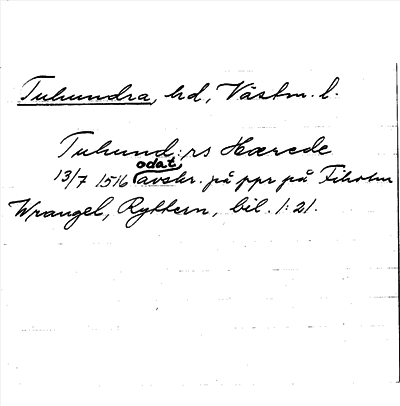 Tuhundra, hd, Västm. l.
Tuhund:rs Hærede
odat.
13/7 1516 avskr. på ppr på Fiholm
Wrangel, Ryttern, bil. 1:21.